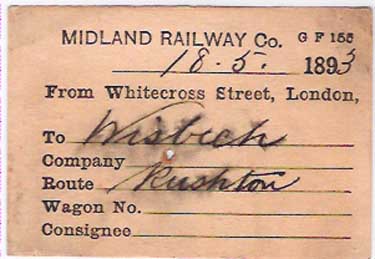 MIDLAND RAILWAY Co. G F 156
18.5. 1893
From Whitecross Street, London,
To Wisbech
Company
Route Rushton
Wagon No.
Consignee